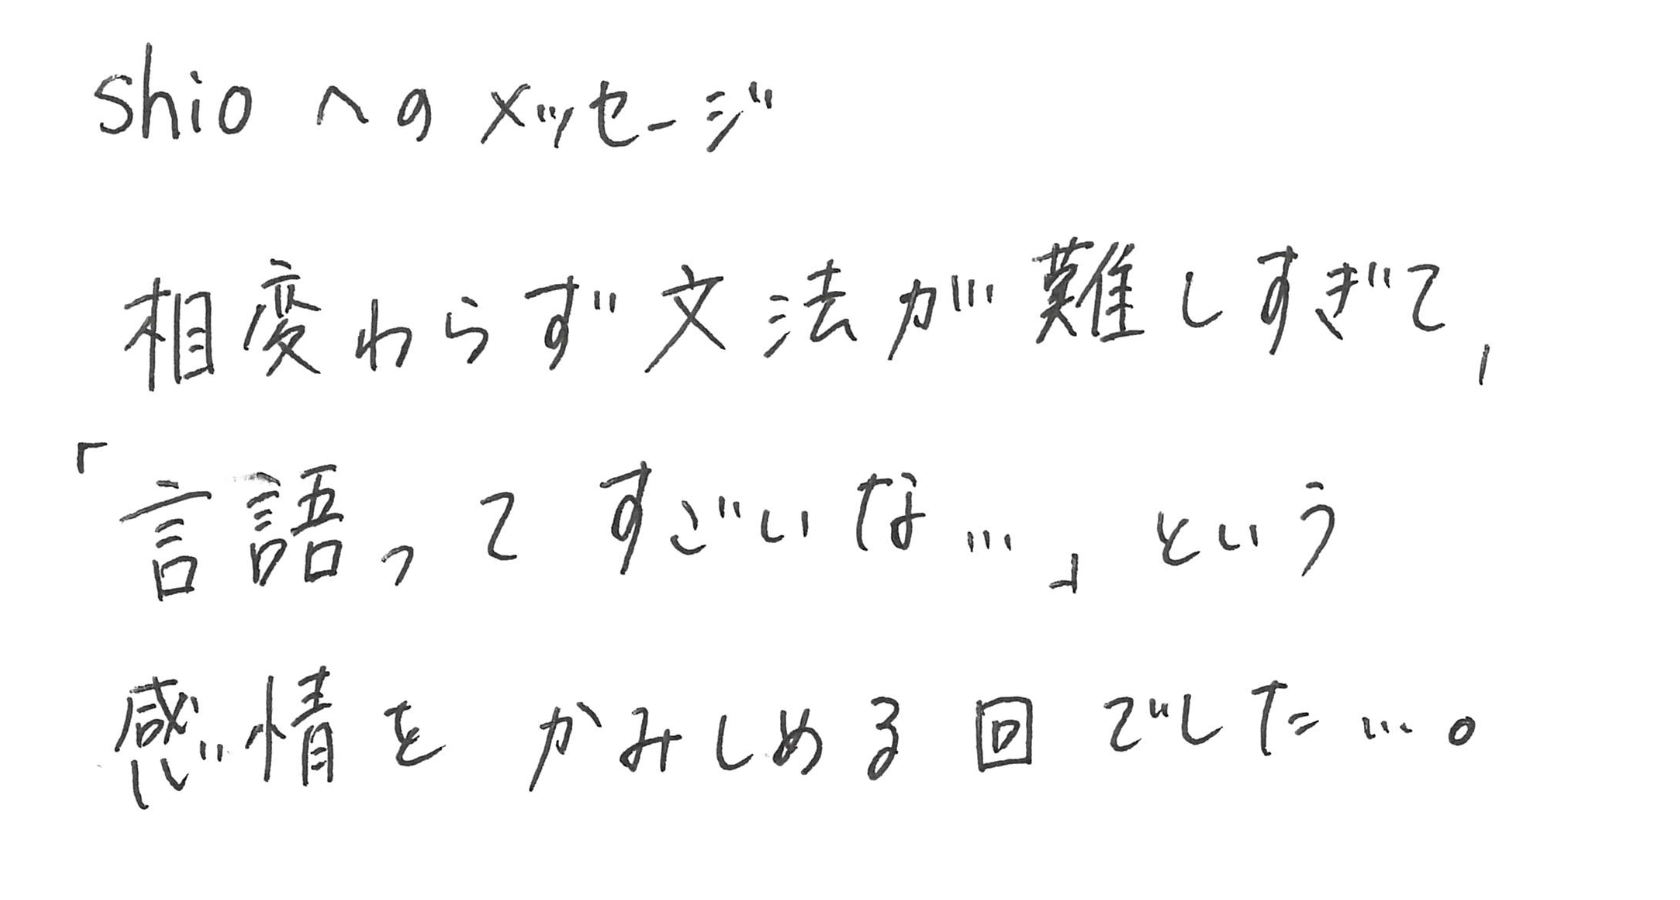 shioへのメッセージ
相変わらず文法が難しすぎて,
「言語ってすごいな…」という
感情をかみしめる回でした…。